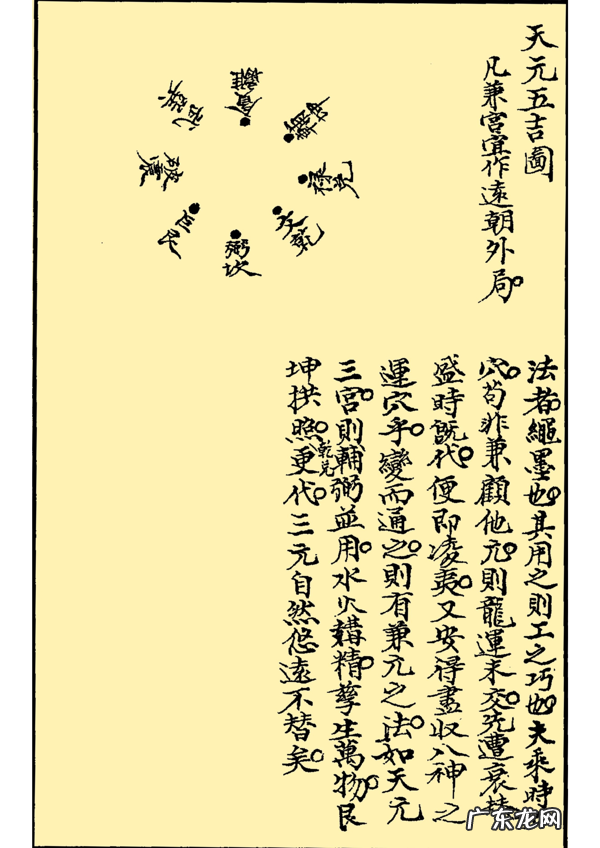 天元五吉圖
凡兼宮宜作遠朝外局。
貪離
輔坤
祿兌
文乾
弼坎
巨艮
破震
武巽
法者繩墨也。其用之則工之巧也。夫乘時
穴。苟非兼顧他元。則龍運未交。先遭衰替
盛時既代。便即凌夷。又安得盡収八神之
運穴乎。變而通之。則有兼元之法。如天元
三宮。則輔弼並用。水火媾精。孳生萬物。艮
乾兌
坤拱照。更代。三元自然悠遠不替矣。
广东龙网